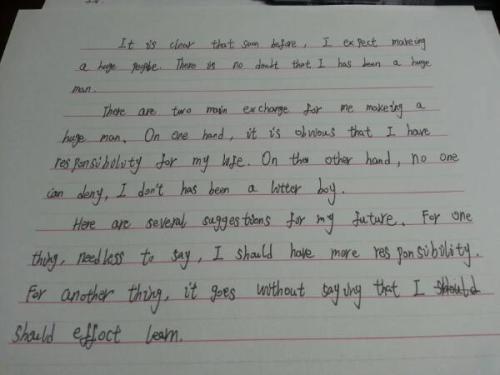 It is clear that soon before, I expect makeing
a huge people. There is no doubt that I has been a huge
man.
There are two main exchange for me makeing a
huge man. On one hand, it is obvious that I have
responsibility for my life. On the other hand, no one
can deny, I don't has been a litter boy.
Here are several suggestions for my future. For one
thing, needless to say, I should have more responsibility.
For another thing, it goes without saying that I should
should effect learn.